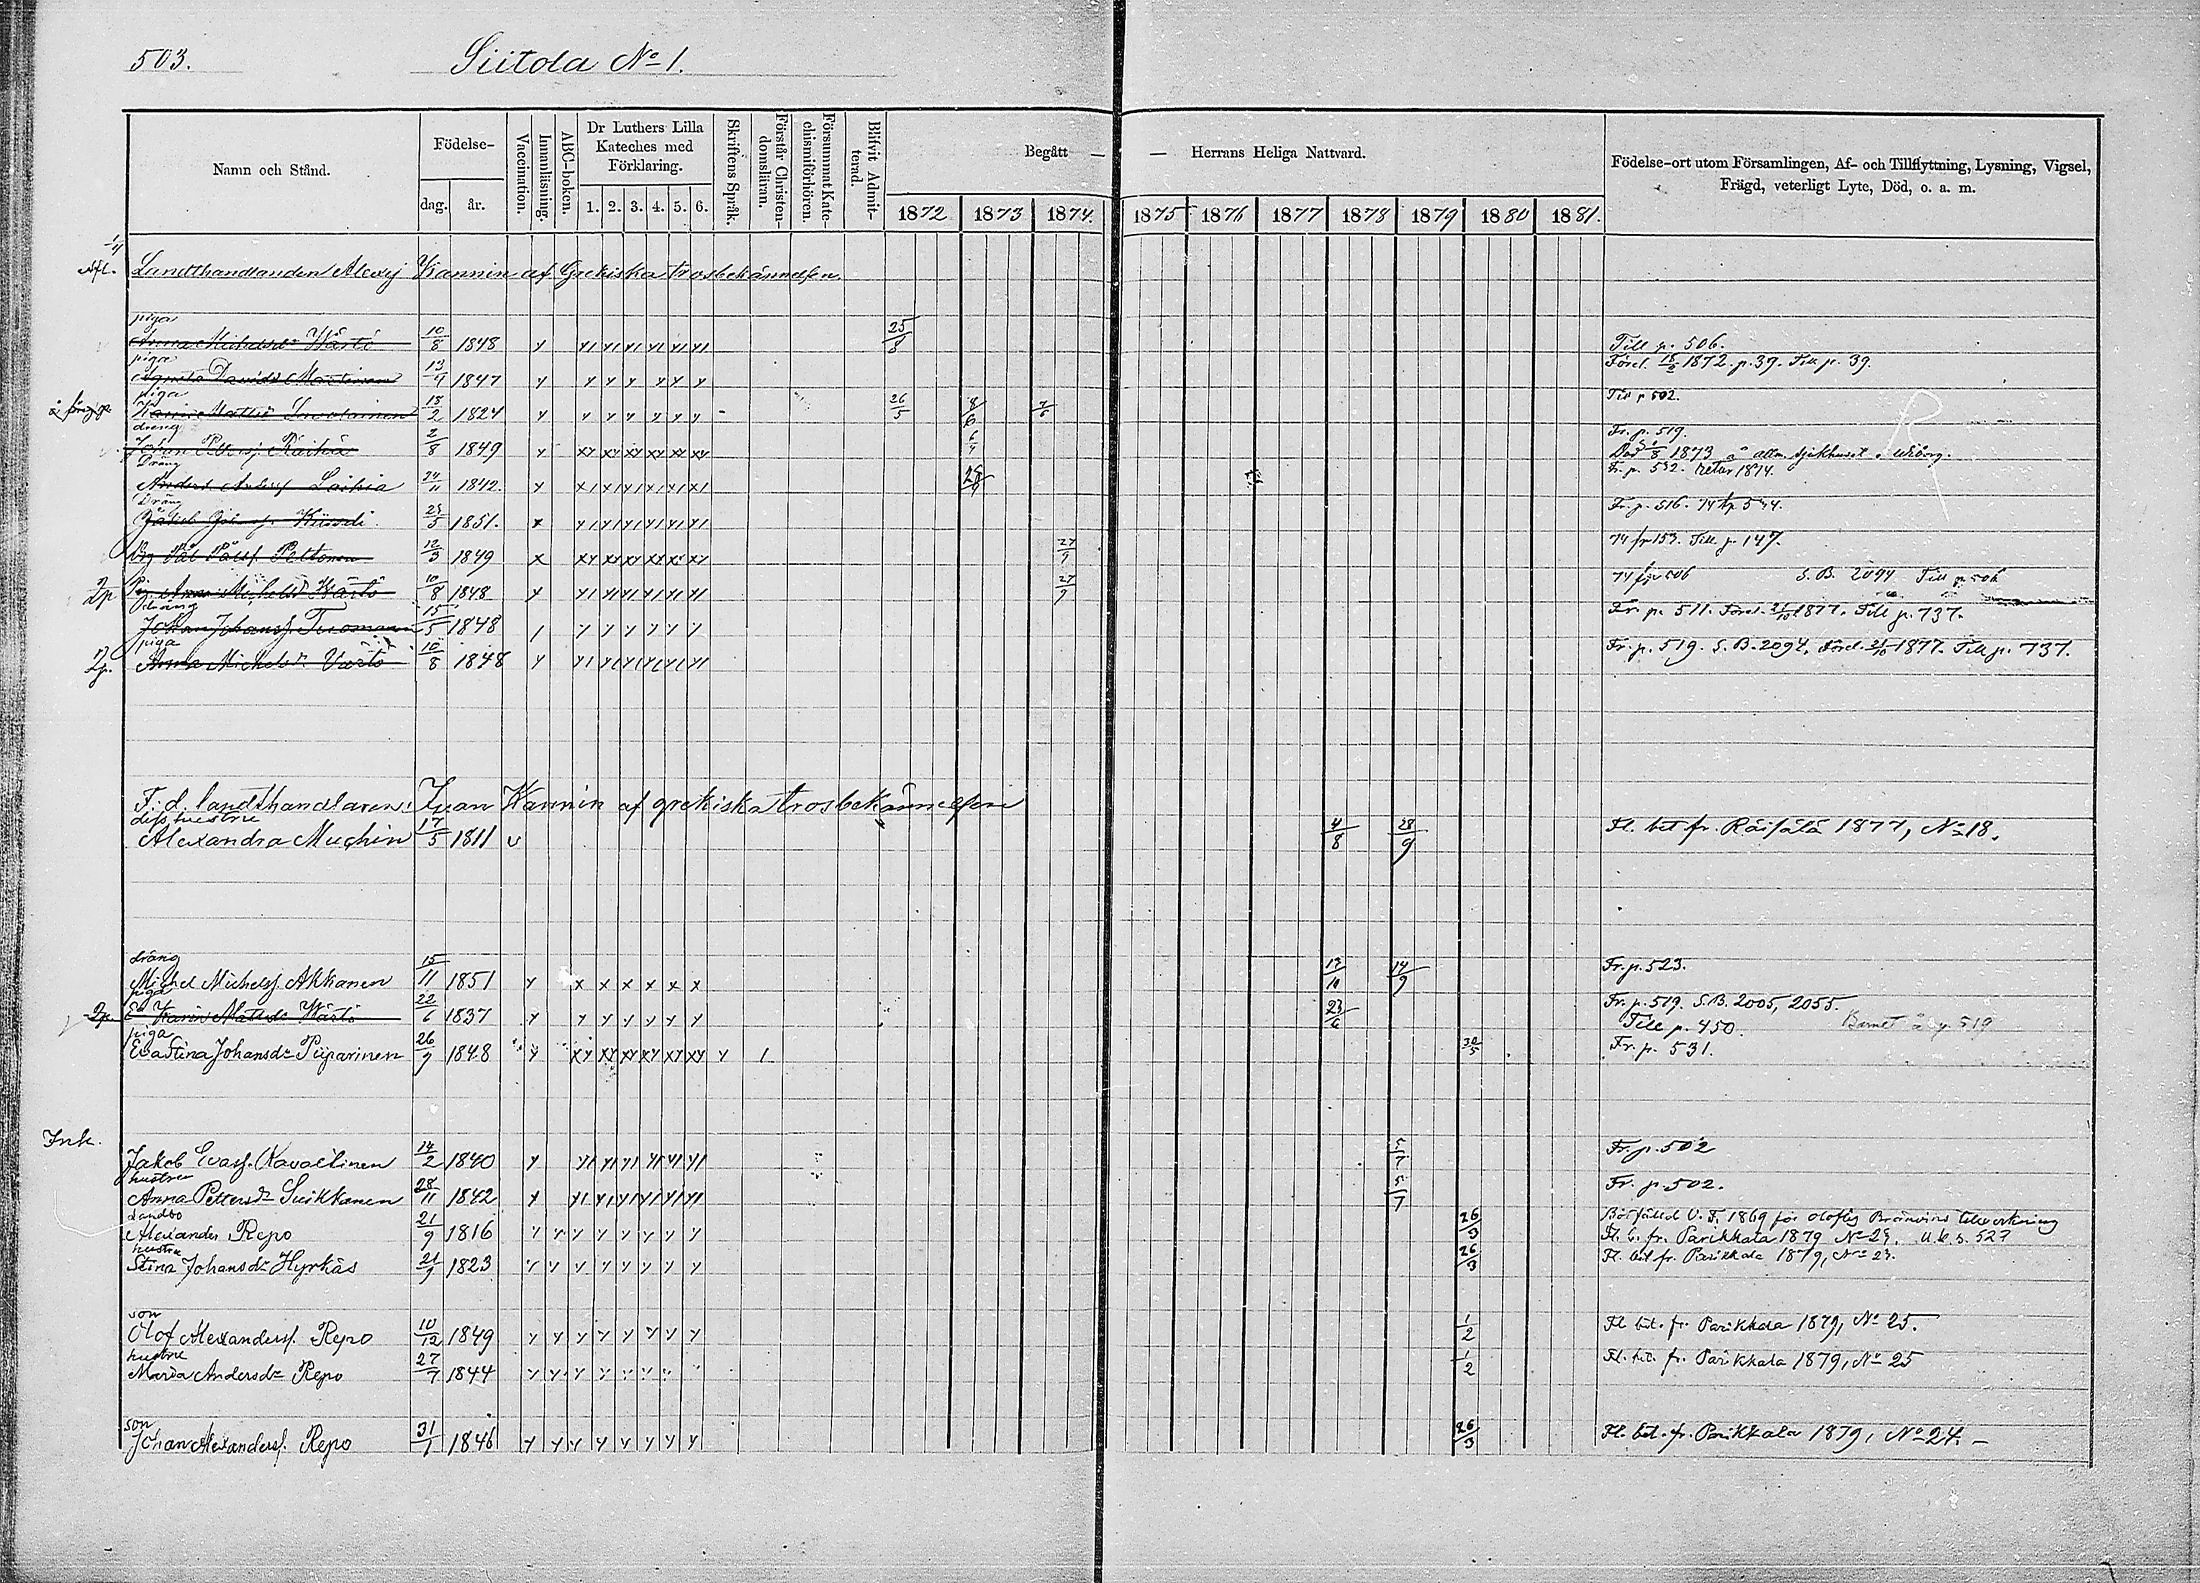 503. Siitola No 1.
Namn och Stånd. Födelse- dag. år. Vaccination. Innanläsning. ABC-boken. Dr Luthers Lilla Kateches med Förklaring. 1. 2. 3. 4. 5. 6. Skriftens Språk. Förstår Christen-domsläran. Försummat Kate-chismiförhören. Blifvit Admit-terad. Begått — — Herrans Heliga Nattvard. Födelse-ort utom Församlingen, Af- och Tillflyttning, Lysning, Vigsel, Frägd, veterligt Lyte, Död, o. a. m.
1872 1873 1874. 1875 1876 1877 1878 1879 1880 1881.
Landthandlanden Alexej Kannin af Grekiska trosbekännelsen
piga
Anna Michelsdr Wärtö 10/8 1848 25/8 Till p. 506.
piga
Agneta Davidsdr Martinen 13/4 1847 1872. p. 39. Till p. 39.
piga
Karin Mattsdr 18/2 1824 26/5 8/6 7/6 Till p 502.
dreng
Johan Petersf. Räihä 2/8 1849 6/4 Fr. p. 519.
Död 1873 å allm. sjukhuset i Wiborg.
Dräng
Anders Laihia 24/11 1842. Fr. p. 532. 1874.
Dräng
Jakob Kiiveli 1851. Fr. p. 516. 74 tp 544.
Pål Pålsf. Peltonen 12/3 1849 27/9 74 fr 153. Till p. 147.
Pig. Anna Michelsdr Wärtö 10/8 1848 27/9 74 fp 506 S. B. 2094 Till p 506
dräng
Johan Johansf. Tuomainen 15/5 1848 Fr. p. 511. Förel. 21/10 1877. Till p. 737.
piga
Anna Michelsdr Värtö 10/8 1848 Fr. p. 519. S. B. 2094. Förel. 21/10 1877. Till p. 737.
F. d. landthandlaren Ivan Kannin af grekiska trosbekännelsen
dess hustru
Alexandra Muchin 17/5 1811 4/8 28/9 Fl. bet fr. Räisälä 1877, No 18.
dräng
Michel Michelsf. Akkanen 15/11 1851 14/9 Fr. p. 523.
piga
Karin Mattsdr Wärtö 22/6 1837 23/6 Fr. p. 519. S. B. 2005, 2055.
Till p. 450. Barnet å p 519
piga
Eva Stina Johansdr Piiparinen 26/9 1848 30/5 Fr. p. 531.
Ink.
Jakob Evasf. Kavolinen 14/2 1840 5/7 Fr. p. 502
hustru
Anna Pettersdr Suikkanen 28/11 1842 5/7 Fr. p. 502.
Landbo
Alexander Repo 21/9 1816 26/3 Botfälld V. T. 1869 för olofligt Bränvins tillverkning
Fl. b. fr. Parikkala 1879 527
hustru
Stina Johansdr Hyrkäs 21/9 1823 26/3 Fl. bet fr. Parikkala 1879, No 23.
son
Olof Alexandersf. Repo 10/12 1849 1/2 Fl bet. fr. Parikkala 1879, No 25.
hustru
Maria Andersdr Repo 27/7 1844 1/2 Fl. bet. fr. Parikkala 1879, No 25
son
Johan Alexandersf. Repo 31/1 1846 26/3 Fl. bet. fr. Parikkala 1879, No 24. –